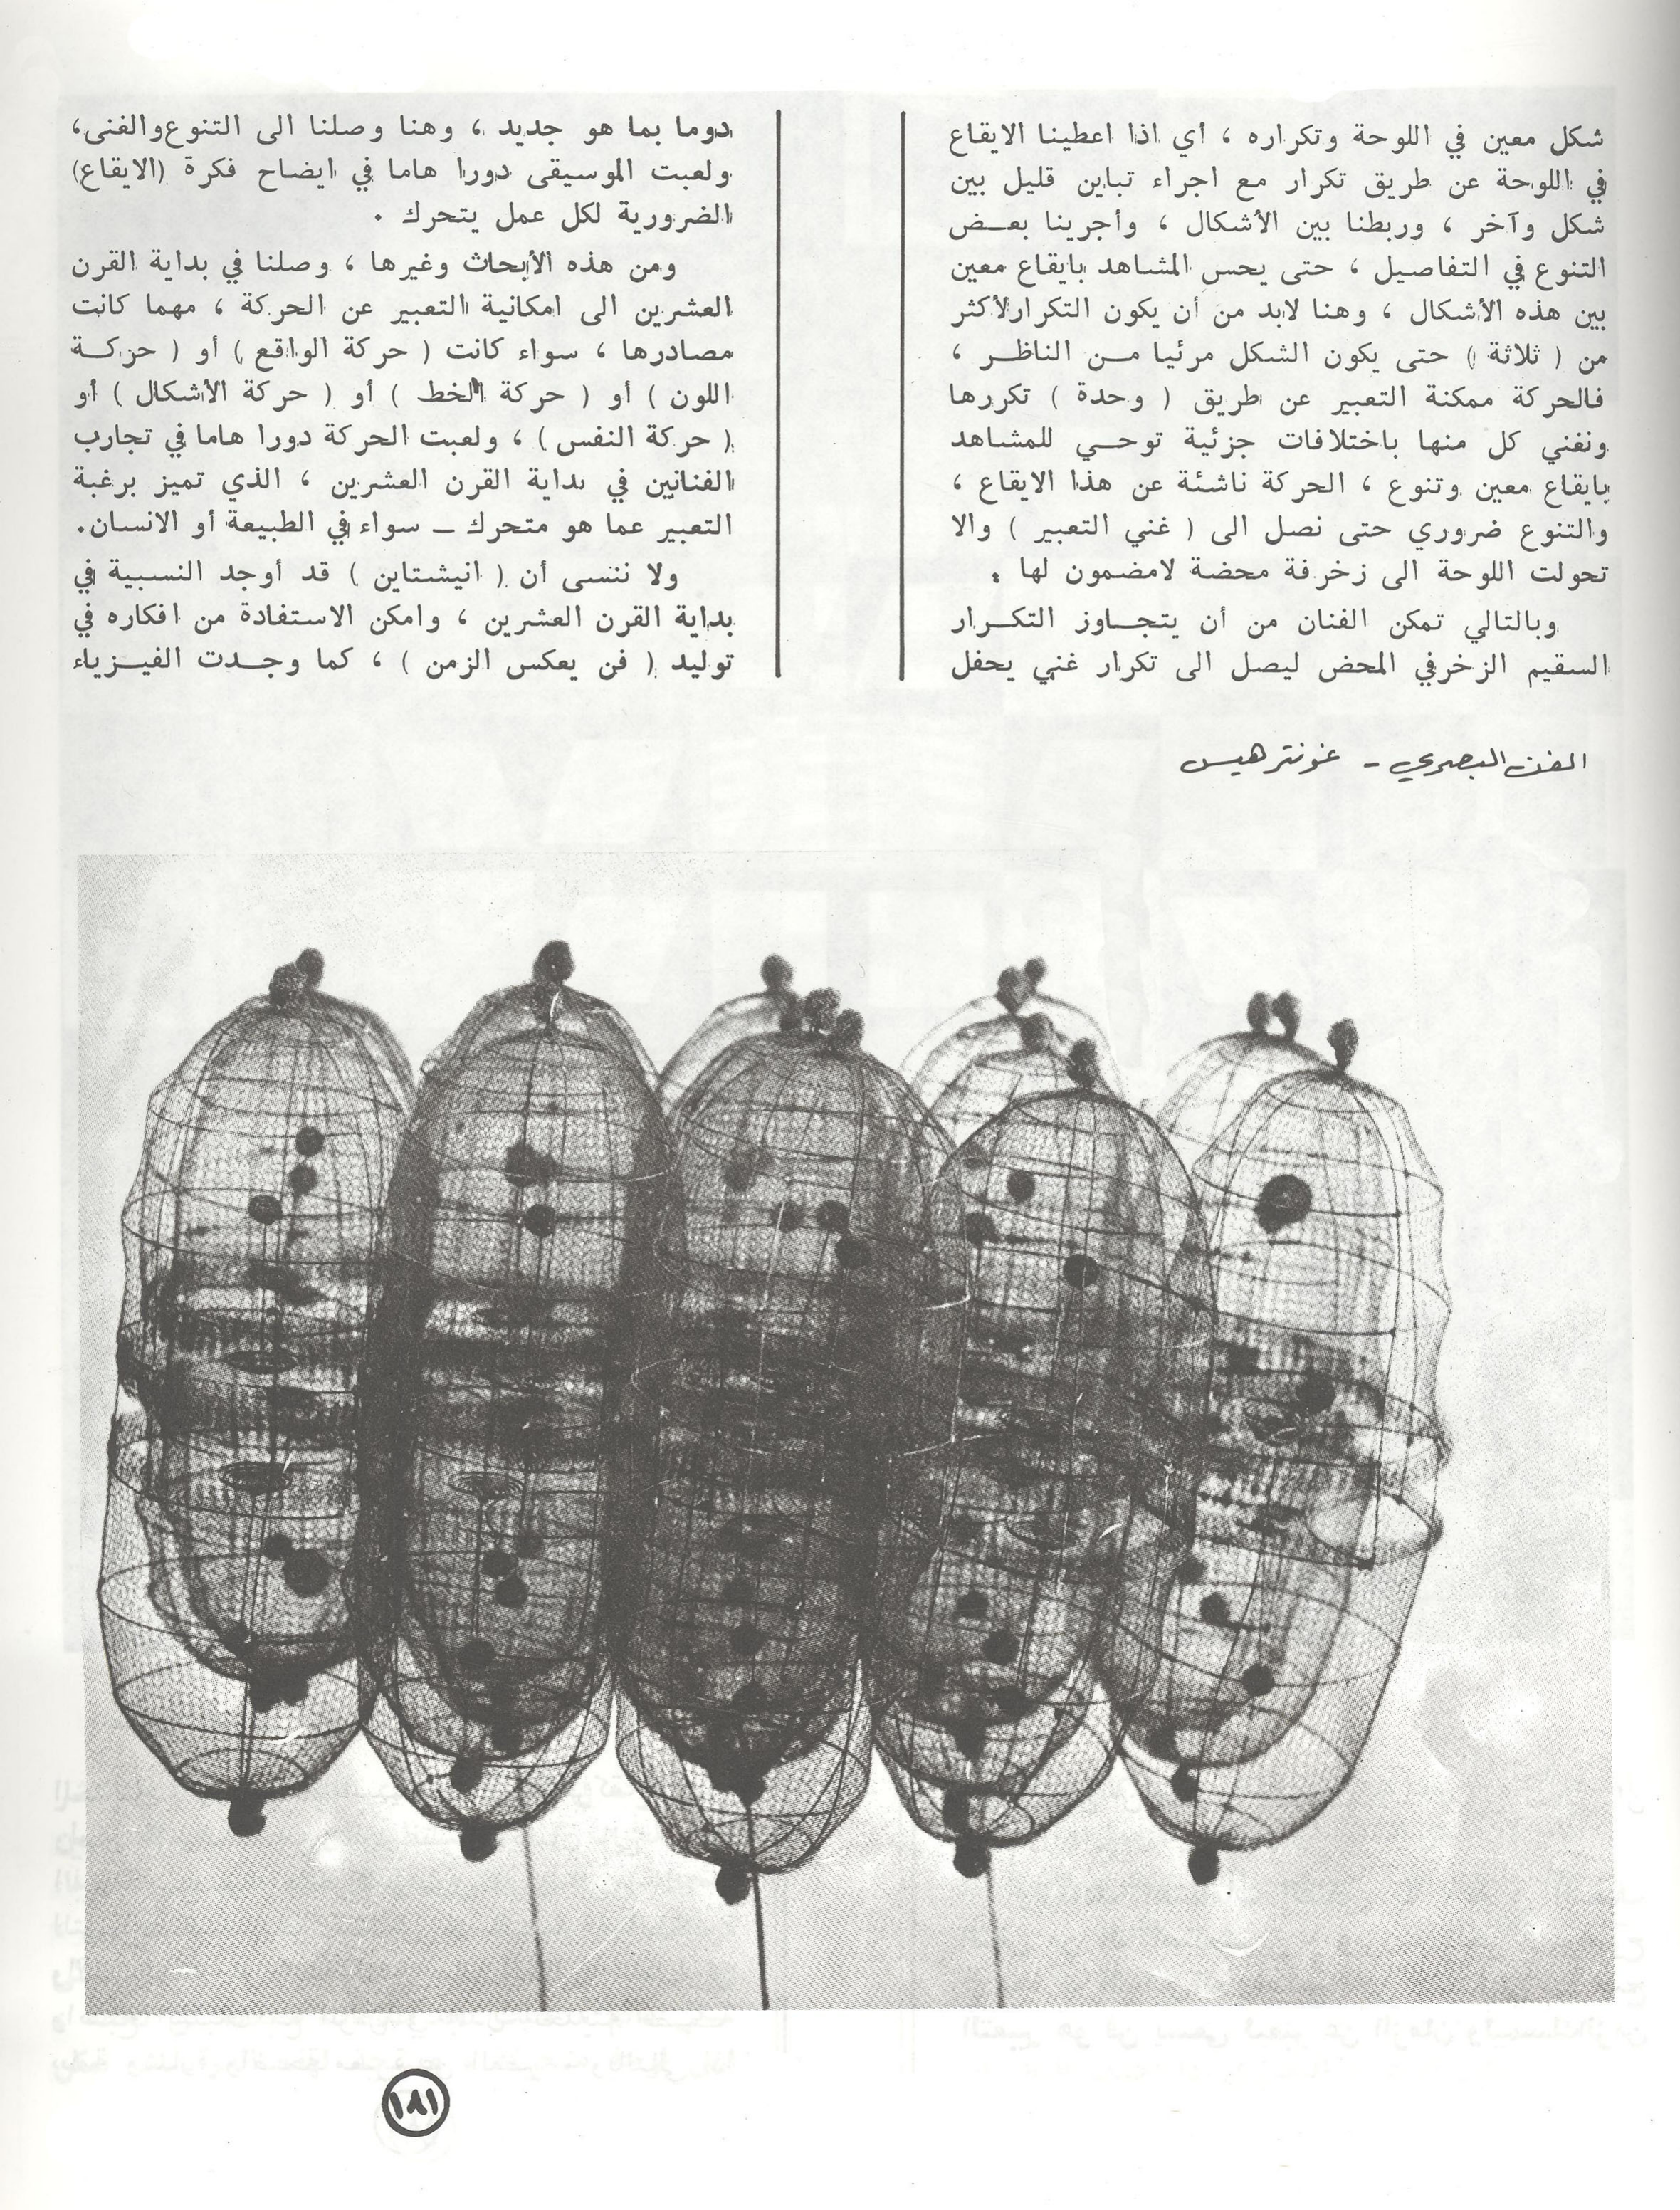 شكل معين في اللوحة وتكراره ، أي اذا اعطينا الايقاع
في اللوحة عن طريق تكرار مع اجراء تباين قليل بين
شكل وآخر ، وربطنا بين الأشكال ، وأجرينا بعـض
التنوع في التفاصيل ، حتى يحس المشاهد بايقاع معين
بين هذه الأشكال ، وهنا لابد من أن يكون التكرار لأكثر
من ( ثلاثة ) حتى يكون الشكل مرئيا مـن الناظـر ،
فالحركة ممكنة التعبير عن طريق ( وحدة ) تكررها
ونغني كل منها باختلافات جزئية توحـي للمشاهد
بايقاع معين وتنوع ، الحركة ناشئة عن هذا الايقاع ،
والتنوع ضروري حتى نصل الى ( غني التعبير ) والا
تحولت اللوحة الى زخرفة محضة لامضمون لها .
وبالتالي تمكن الفنان من أن يتجـاوز التكـرار
السقيم الزخرفي المحض ليصل الى تكرار غني يحفل
دوما بما هو جديد ، وهنا وصلنا الى التنوع والغنى،
ولعبت الموسيقى دورا هاما في ايضاح فكرة (الايقاع)
الضرورية لكل عمل يتحرك .
ومن هذه الأبحاث وغيرها ، وصلنا في بداية القرن
العشرين الى امكانية التعبير عن الحركة ، مهما كانت
مصادرها ، سواء كانت ( حركة الواقع ) أو ( حركـة
اللون ) أو ( حركة الخط ) أو ( حركة الأشكال ) أو
( حركة النفس ) ، ولعبت الحركة دورا هاما في تجارب
الفنانين في بداية القرن العشرين ، الذي تميز برغبة
التعبير عما هو متحرك ـ سواء في الطبيعة أو الانسان.
ولا ننسى أن ( انيشتاين ) قد أوجد النسبية في
بداية القرن العشرين ، وامكن الاستفادة من افكاره في
توليد ( فن يعكس الزمن ) ، كما وجـدت الفيـزياء
الفن البصري - غونتر هيس
١٨١